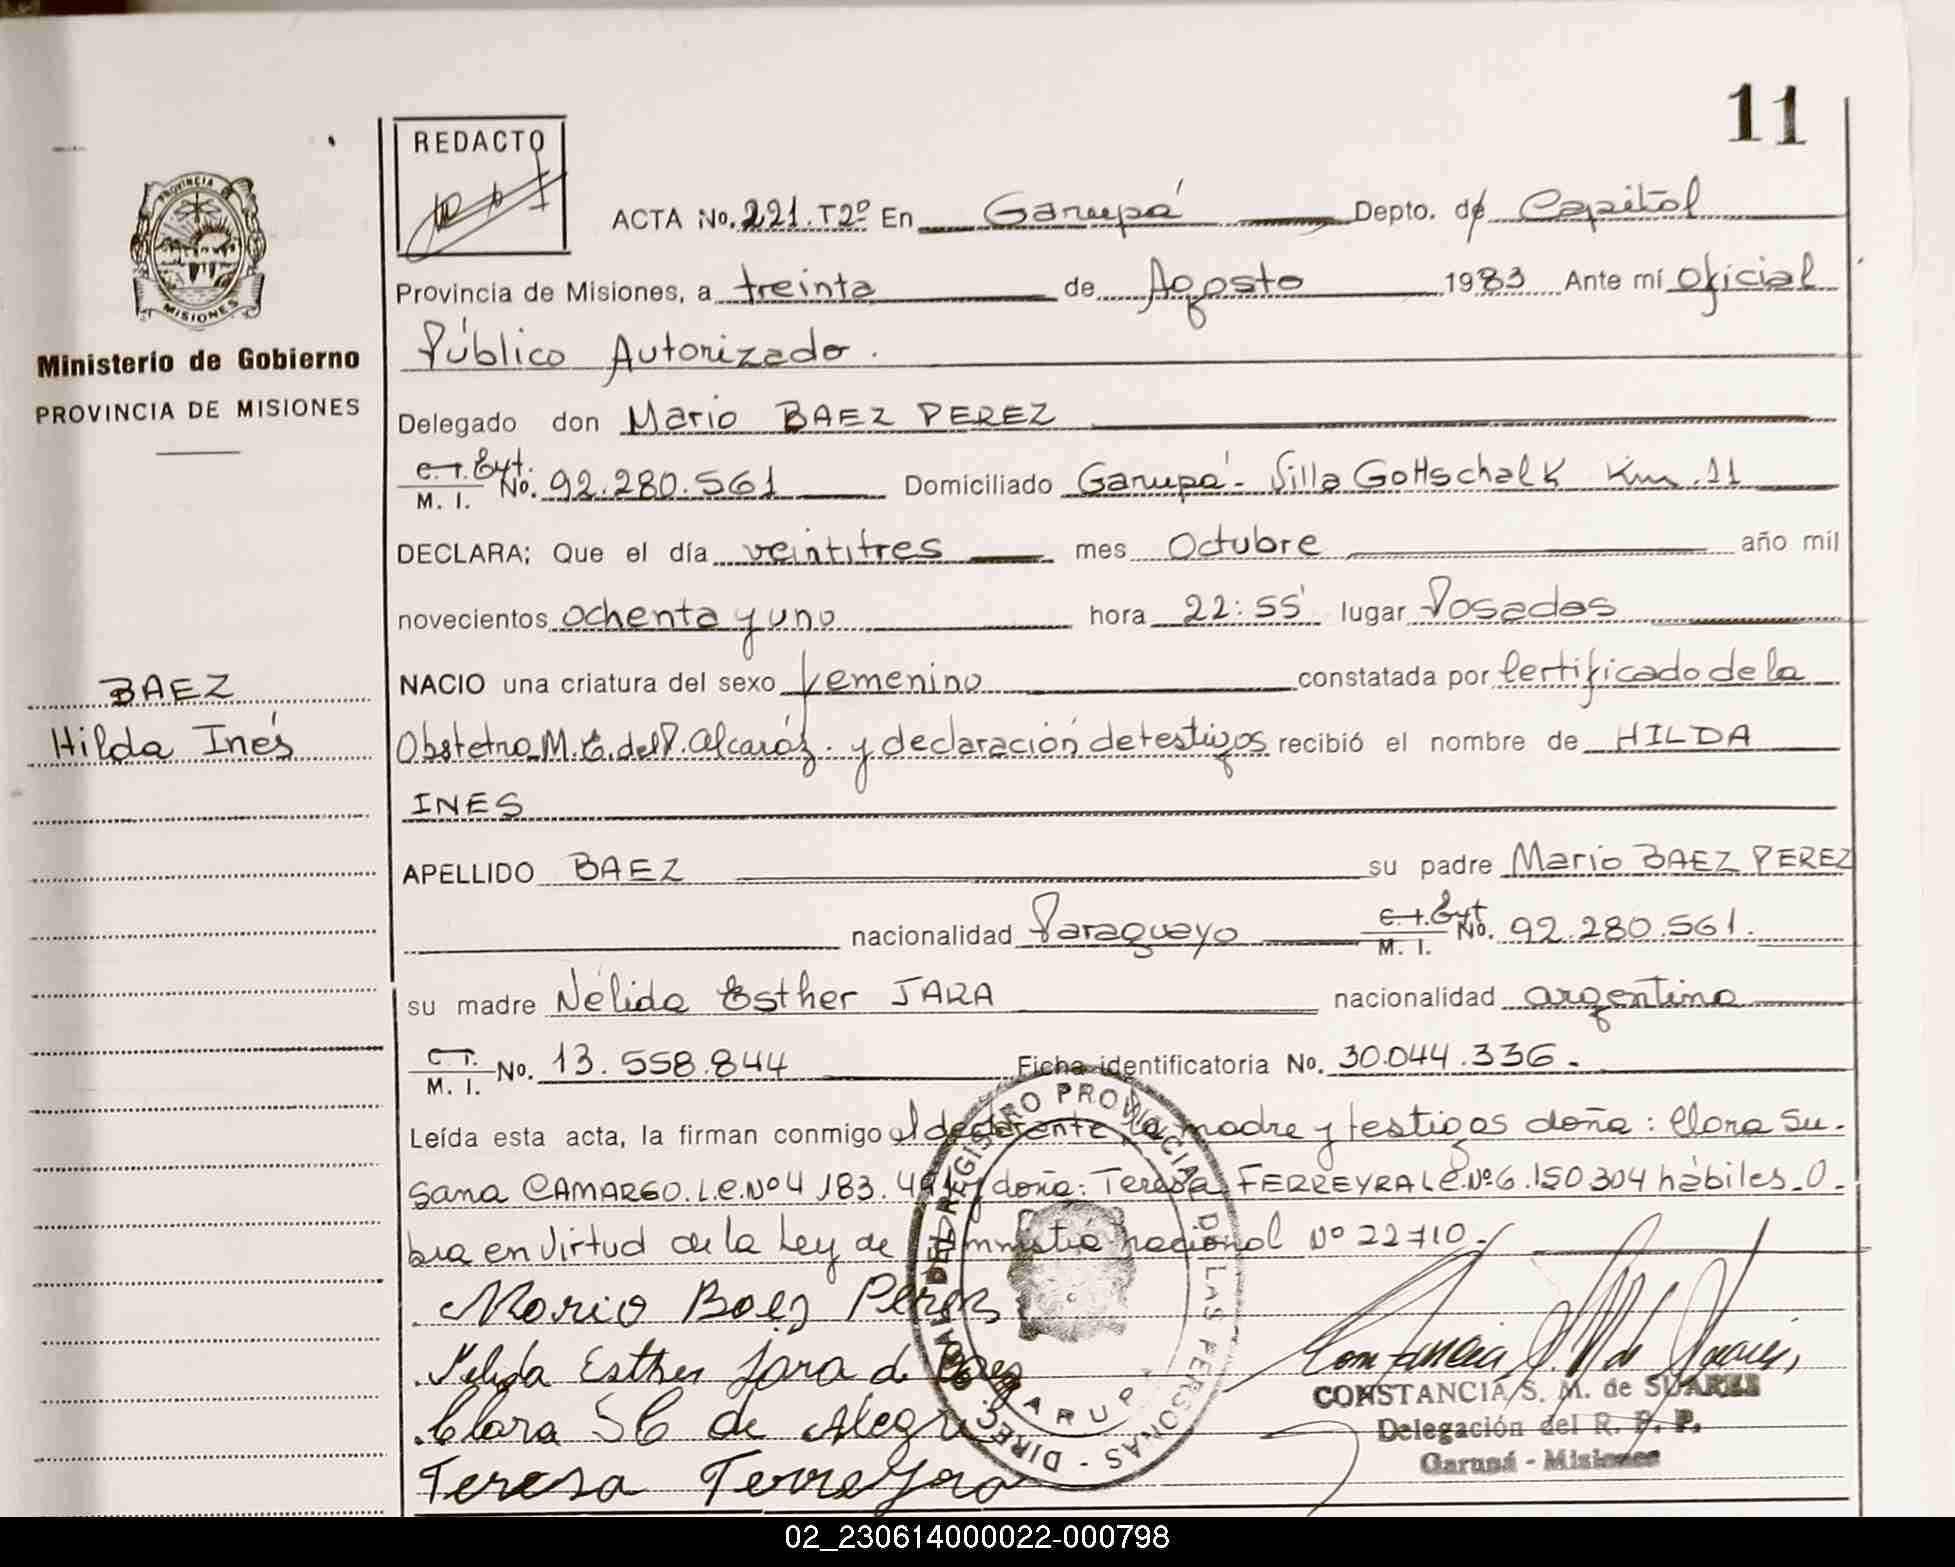 11
REDACTO
PROVINCIA DE
MISIONES
Ministerio de Gobierno
PROVINCIA DE MISIONES
BAEZ
Hilda Inés
ACTA No. 221. T2º En Garupá Depto. de Capital
Provincia de Misiones, a treinta de Agosto 1983 Ante mí Oficial
Público Autorizado.
Delegado don Mario BAEZ PEREZ
C. I. Ext. M. I. No. 92.280.561 Domiciliado Garupá - Villa Gottschalk Km. 11
DECLARA; Que el día veintitres mes Octubre año mil
novecientos ochenta y uno hora 22:55' lugar Posadas
NACIO una criatura del sexo femenino constatada por Certificado de la
Obstetra M. del P. Alcaráz. y declaración de testigos recibió el nombre de HILDA
INES
APELLIDO BAEZ su padre Mario BAEZ PEREZ
nacionalidad Paraguayo C. I. Ext. M. I. No. 92.280.561.
su madre Nélida Esther JARA nacionalidad argentina
C. I. M. I. No. 13.558.844 Ficha identificatoria No. 30.044.336.
Leída esta acta, la firman conmigo el declarante, la madre y testigos doña: Clara Su-
sana CAMARGO. L.C. Nº 4 183. y doña: Teresa FERREYRA L C. Nº 6.150304 hábiles. O-
bra en virtud de la Ley de Amnistía nacional Nº 22710.-
Mario Baez Perez
Nelida Esther Jara de Baez
Clara S C de Alegre
Teresa Ferreyra
DIRECCION GRAL. DEL REGISTRO PROVINCIAL DE LAS PERSONAS -
GARUPA
Constancia S. M. de Suarez
CONSTANCIA S. M. de SUAREZ
Delegación del R. P. P.
Garupá - Misiones
02_230614000022-000798